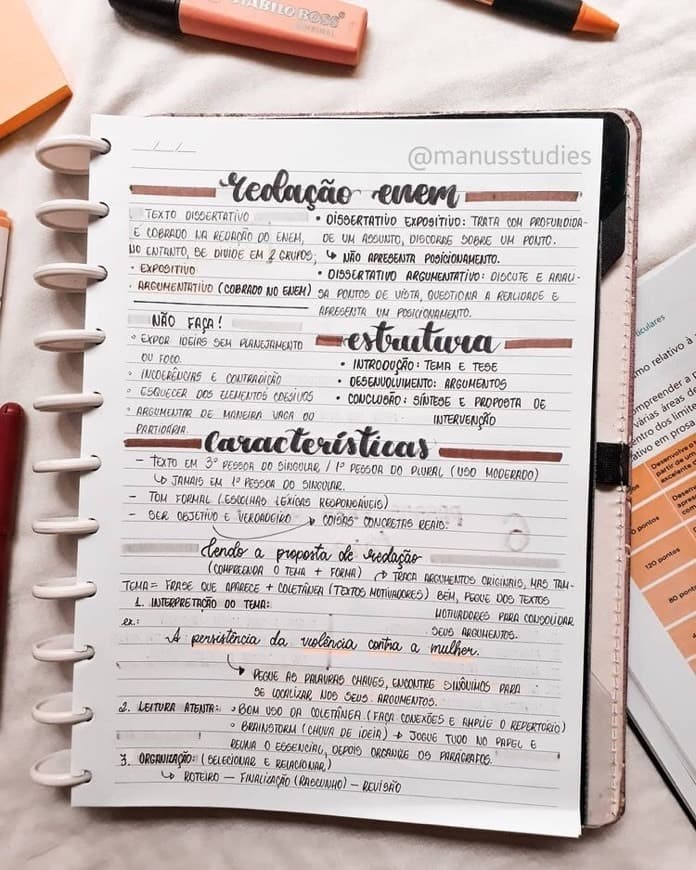 STABILO BOSS
ORIGINAL
@manusstudies
redação enem
TEXTO DISSERTATIVO
É COBRADO NA REDAÇÃO DO ENEM,
NO ENTANTO, SE DIVIDE EM 2 GRUPOS:
• EXPOSITIVO
• ARGUMENTATIVO (COBRADO NO ENEM)
• DISSERTATIVO EXPOSITIVO: TRATA COM PROFUNDIDA-
DE DE UM ASSUNTO, DISCORRE SOBRE UM PONTO.
↳ NÃO APRESENTA POSICIONAMENTO.
• DISSERTATIVO ARGUMENTATIVO: DISCUTE E ANALI-
SA PONTOS DE VISTA, QUESTIONA A REALIDADE E
APRESENTA UM POSICIONAMENTO.
NÃO FAÇA!
• EXPOR IDEIAS SEM PLANEJAMENTO
OU FOCO.
• INCOERÊNCIAS E CONTRADIÇÃO
• ESQUECER DOS ELEMENTOS COESIVOS
• ARGUMENTAR DE MANEIRA VAGA OU
PARTIDÁRIA.
estrutura
• INTRODUÇÃO: TEMA E TESE
• DESENVOLVIMENTO: ARGUMENTOS
• CONCLUSÃO: SÍNTESE E PROPOSTA DE
INTERVENÇÃO
características
- TEXTO EM 3ª PESSOA DO SINGULAR / 1ª PESSOA DO PLURAL (USO MODERADO)
↳ JAMAIS EM 1ª PESSOA DO SINGULAR.
- TOM FORMAL (ESCOLHAS LEXICAS RESPONSÁVEIS)
- SER OBJETIVO E VERDADEIRO → COISAS CONCRETAS REAIS.
Lendo a proposta de redação
(COMPREENDA O TEMA + FORMA)
TEMA = FRASE QUE APARECE + COLETÂNEA (TEXTOS MOTIVADORES)
→ TRAGA ARGUMENTOS ORIGINAIS, MAS TAM-
BÉM, PEGUE DOS TEXTOS
MOTIVADORES PARA CONSOLIDAR
SEUS ARGUMENTOS.
1. INTERPRETAÇÃO DO TEMA:
ex.:
A persistência da violência contra a mulher.
↳ PEGUE AS PALAVRAS CHAVES, ENCONTRE SINÔNIMOS PARA
SE LOCALIZAR NOS SEUS ARGUMENTOS.
2. LEITURA ATENTA: • BOM USO DA COLETÂNEA (FAÇA CONEXÕES E AMPLIE O REPERTÓRIO)
• BRAINSTORM (CHUVA DE IDEIA) → JOGUE TUDO NO PAPEL E
REUNA O ESSENCIAL, DEPOIS ORGANIZE OS PARÁGRAFOS.
3. ORGANIZAÇÃO: (SELECIONAR E RELACIONAR)
↳ ROTEIRO — FINALIZAÇÃO (RASCUNHO) — REVISÃO
iculares
mo relativo à
mpreender a p
várias áreas de
entro dos limi
ativo em prosa
120 pontos
80 pont